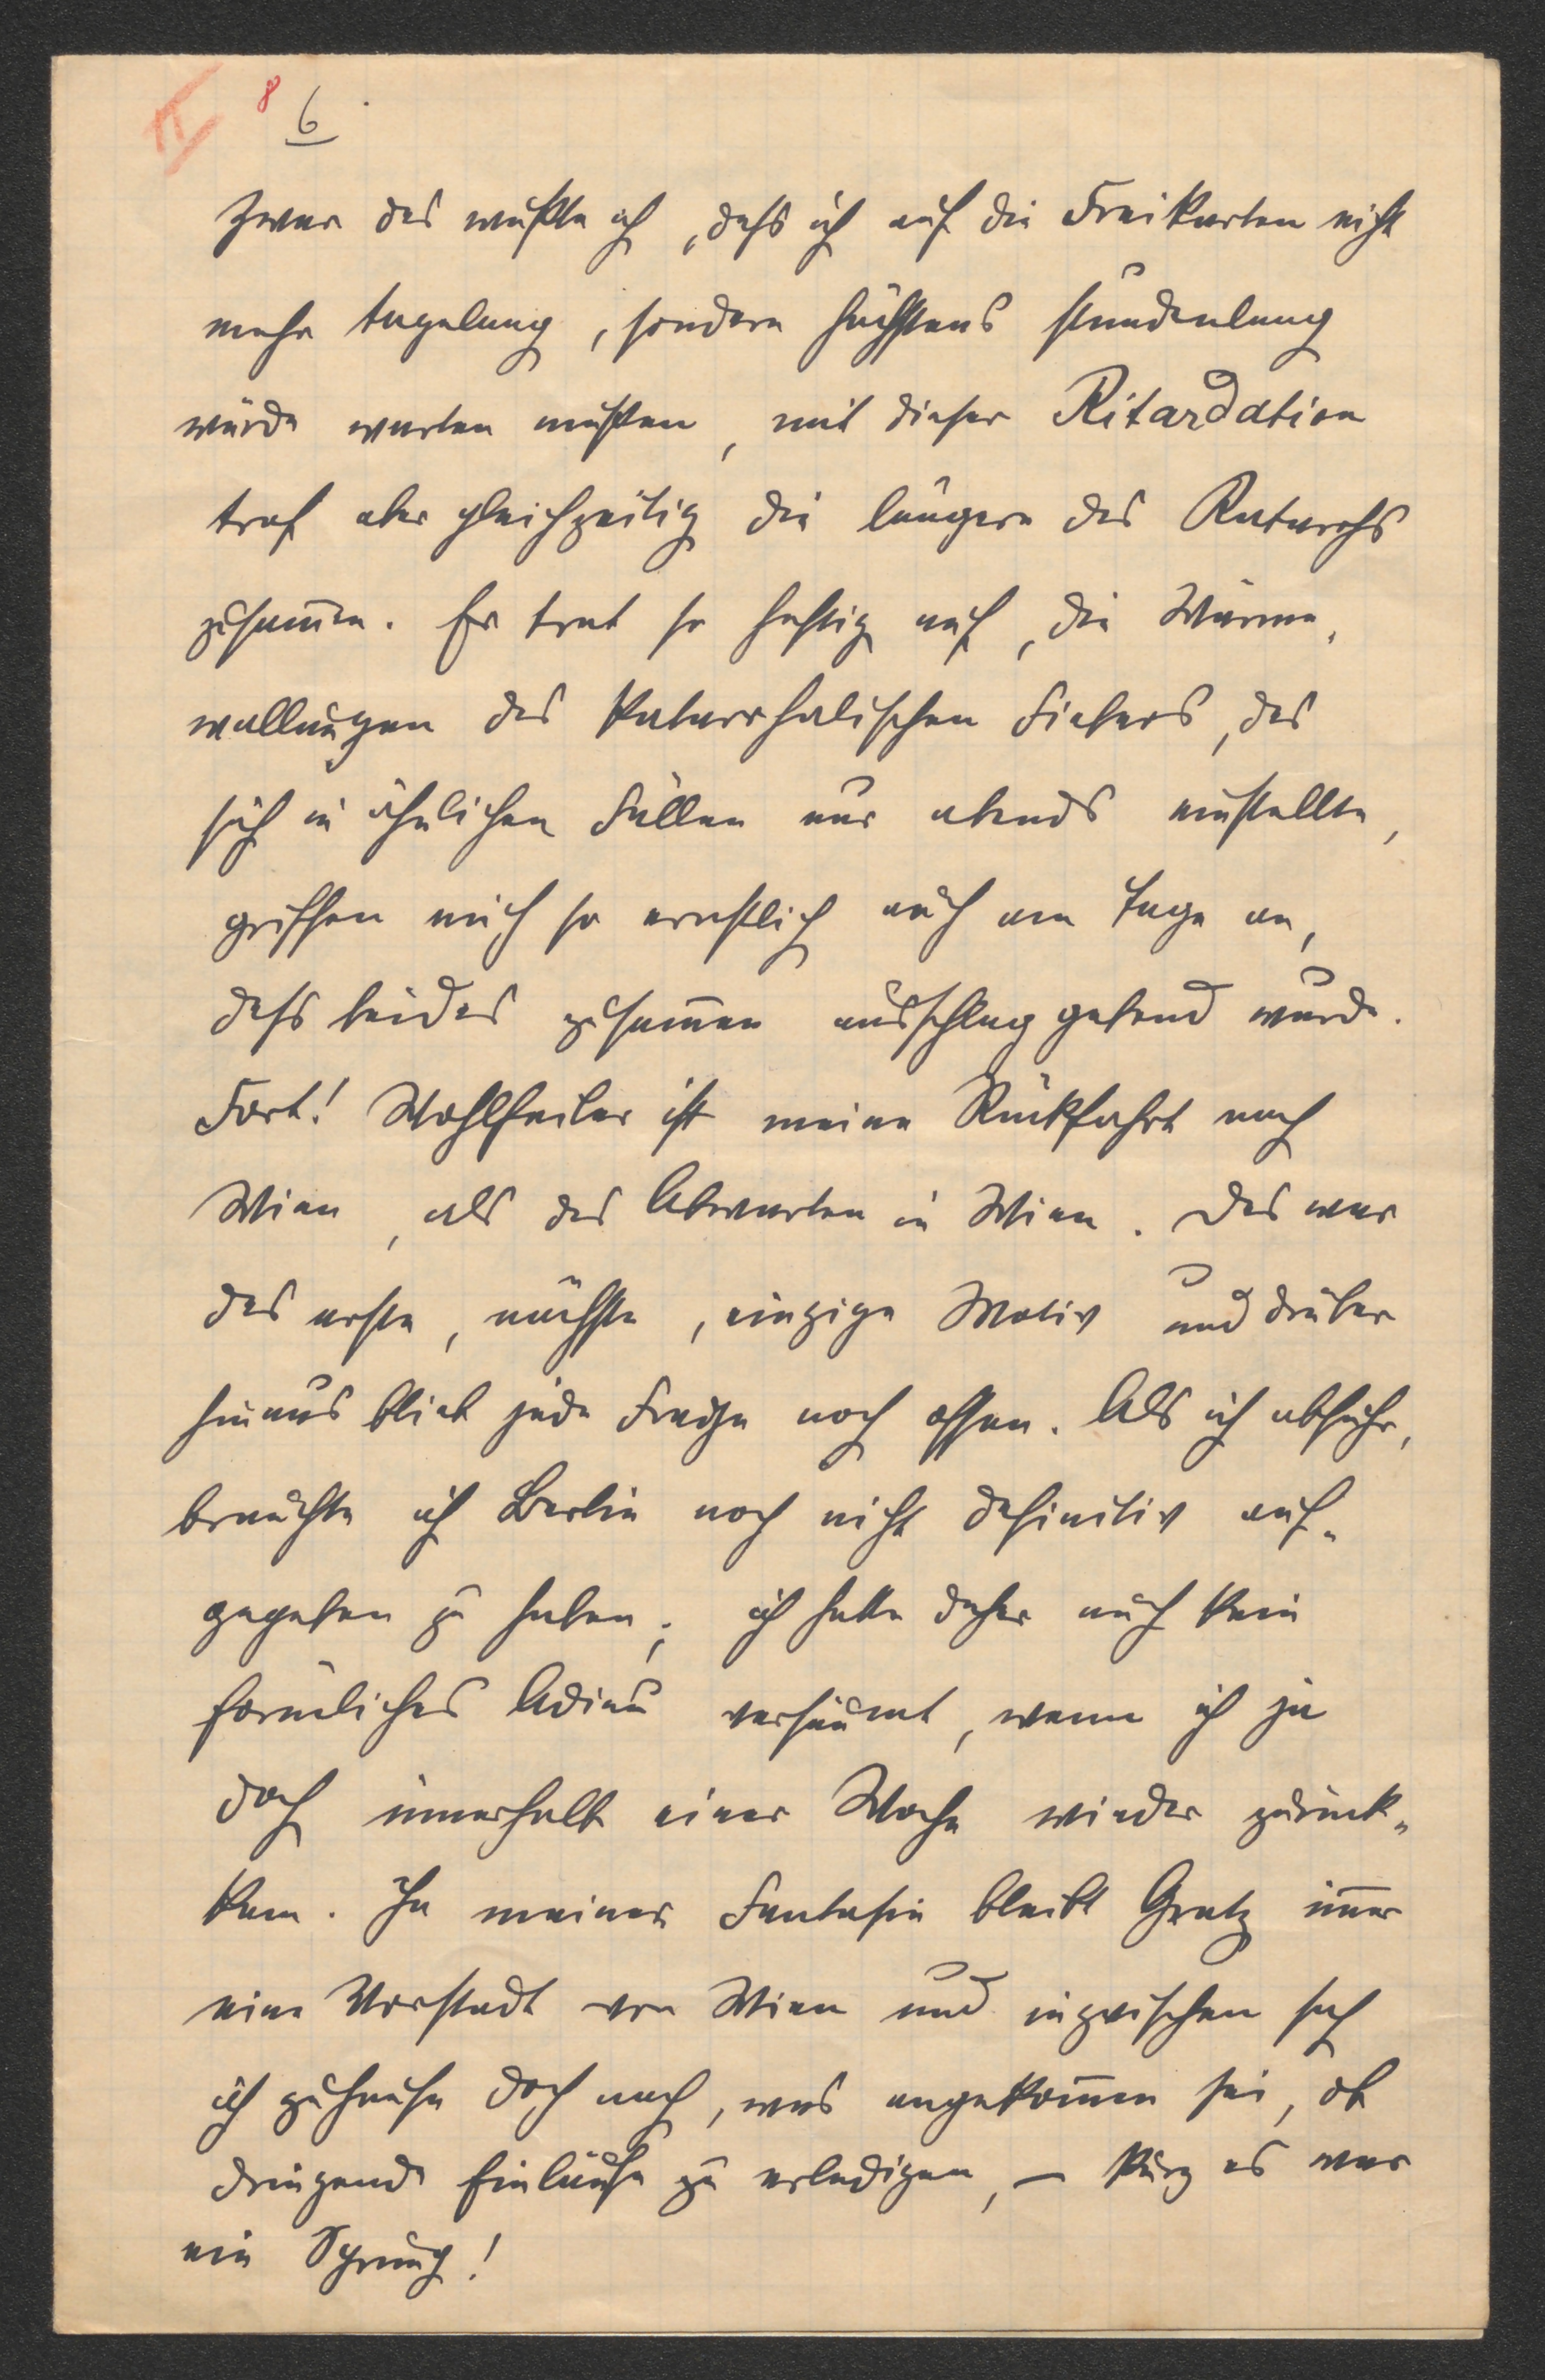 II 8 6
Zwar das wußte ich, daß ich auf die Freikarten nicht
mehr tagelang, sondern höchstens stundenlang
würde warten müßen, mit dieser Ritardation
traf aber gleichzeitig die längere des Katarrhs
zusam̄en. Er trat so heftig auf, die Wärme„
wallungen des katarrhalischen Fiebers, das
sich in ähnlichen Fällen nur abends einstellte,
griffen mich so ernstlich auch am Tage an,
daß beides zusam̄en ausschlaggebend wurde.
Fort! Wohlfeiler ist meine Rückfahrt nach
Wien, als das Abwarten in Wien. Das war
das erste, nächste, einzige Motiv und drüber
hinaus blieb jede Frage noch offen. Als ich abfuhr,
brauchte ich Berlin noch nicht definitiv auf„
gegeben zu haben; ich hatte daher auch kein
förmliches Adieu versäumt, wenn ich ja
doch innerhalb einer Woche wieder zurück„
kam. In meiner Fantasie bleibt Gratz im̄er
eine Vorstadt von Wien und inzwischen sah
ich zuhause doch nach, was angekom̄en sei, ob
dringende Einläufe zu erledigen, – kurz es war
ein Sprung!